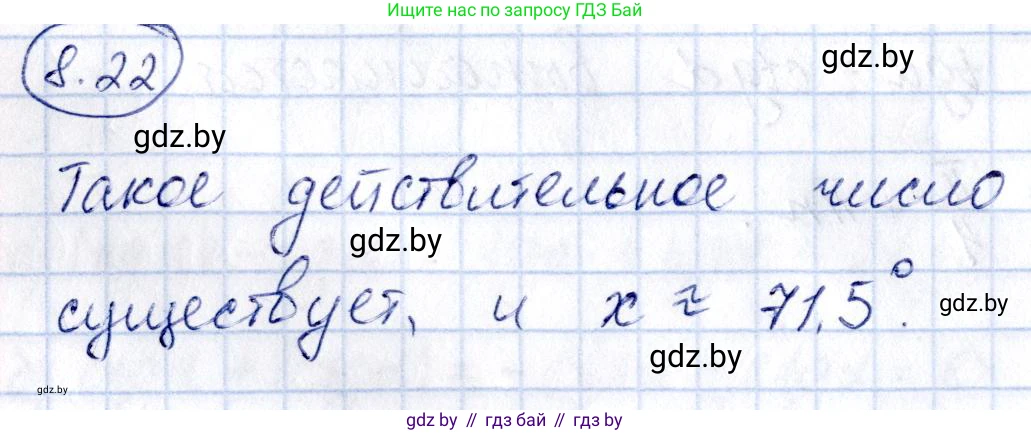 Ищите нас по запросу ГДЗ Бай
8.22
gdz.by
gdz.by
Такое действительное число
gdz.by
существует, и x ≈ 71,5°.
gdz.by
gdz.by
gdz.by
gdz.by // гдз бай // гдз by